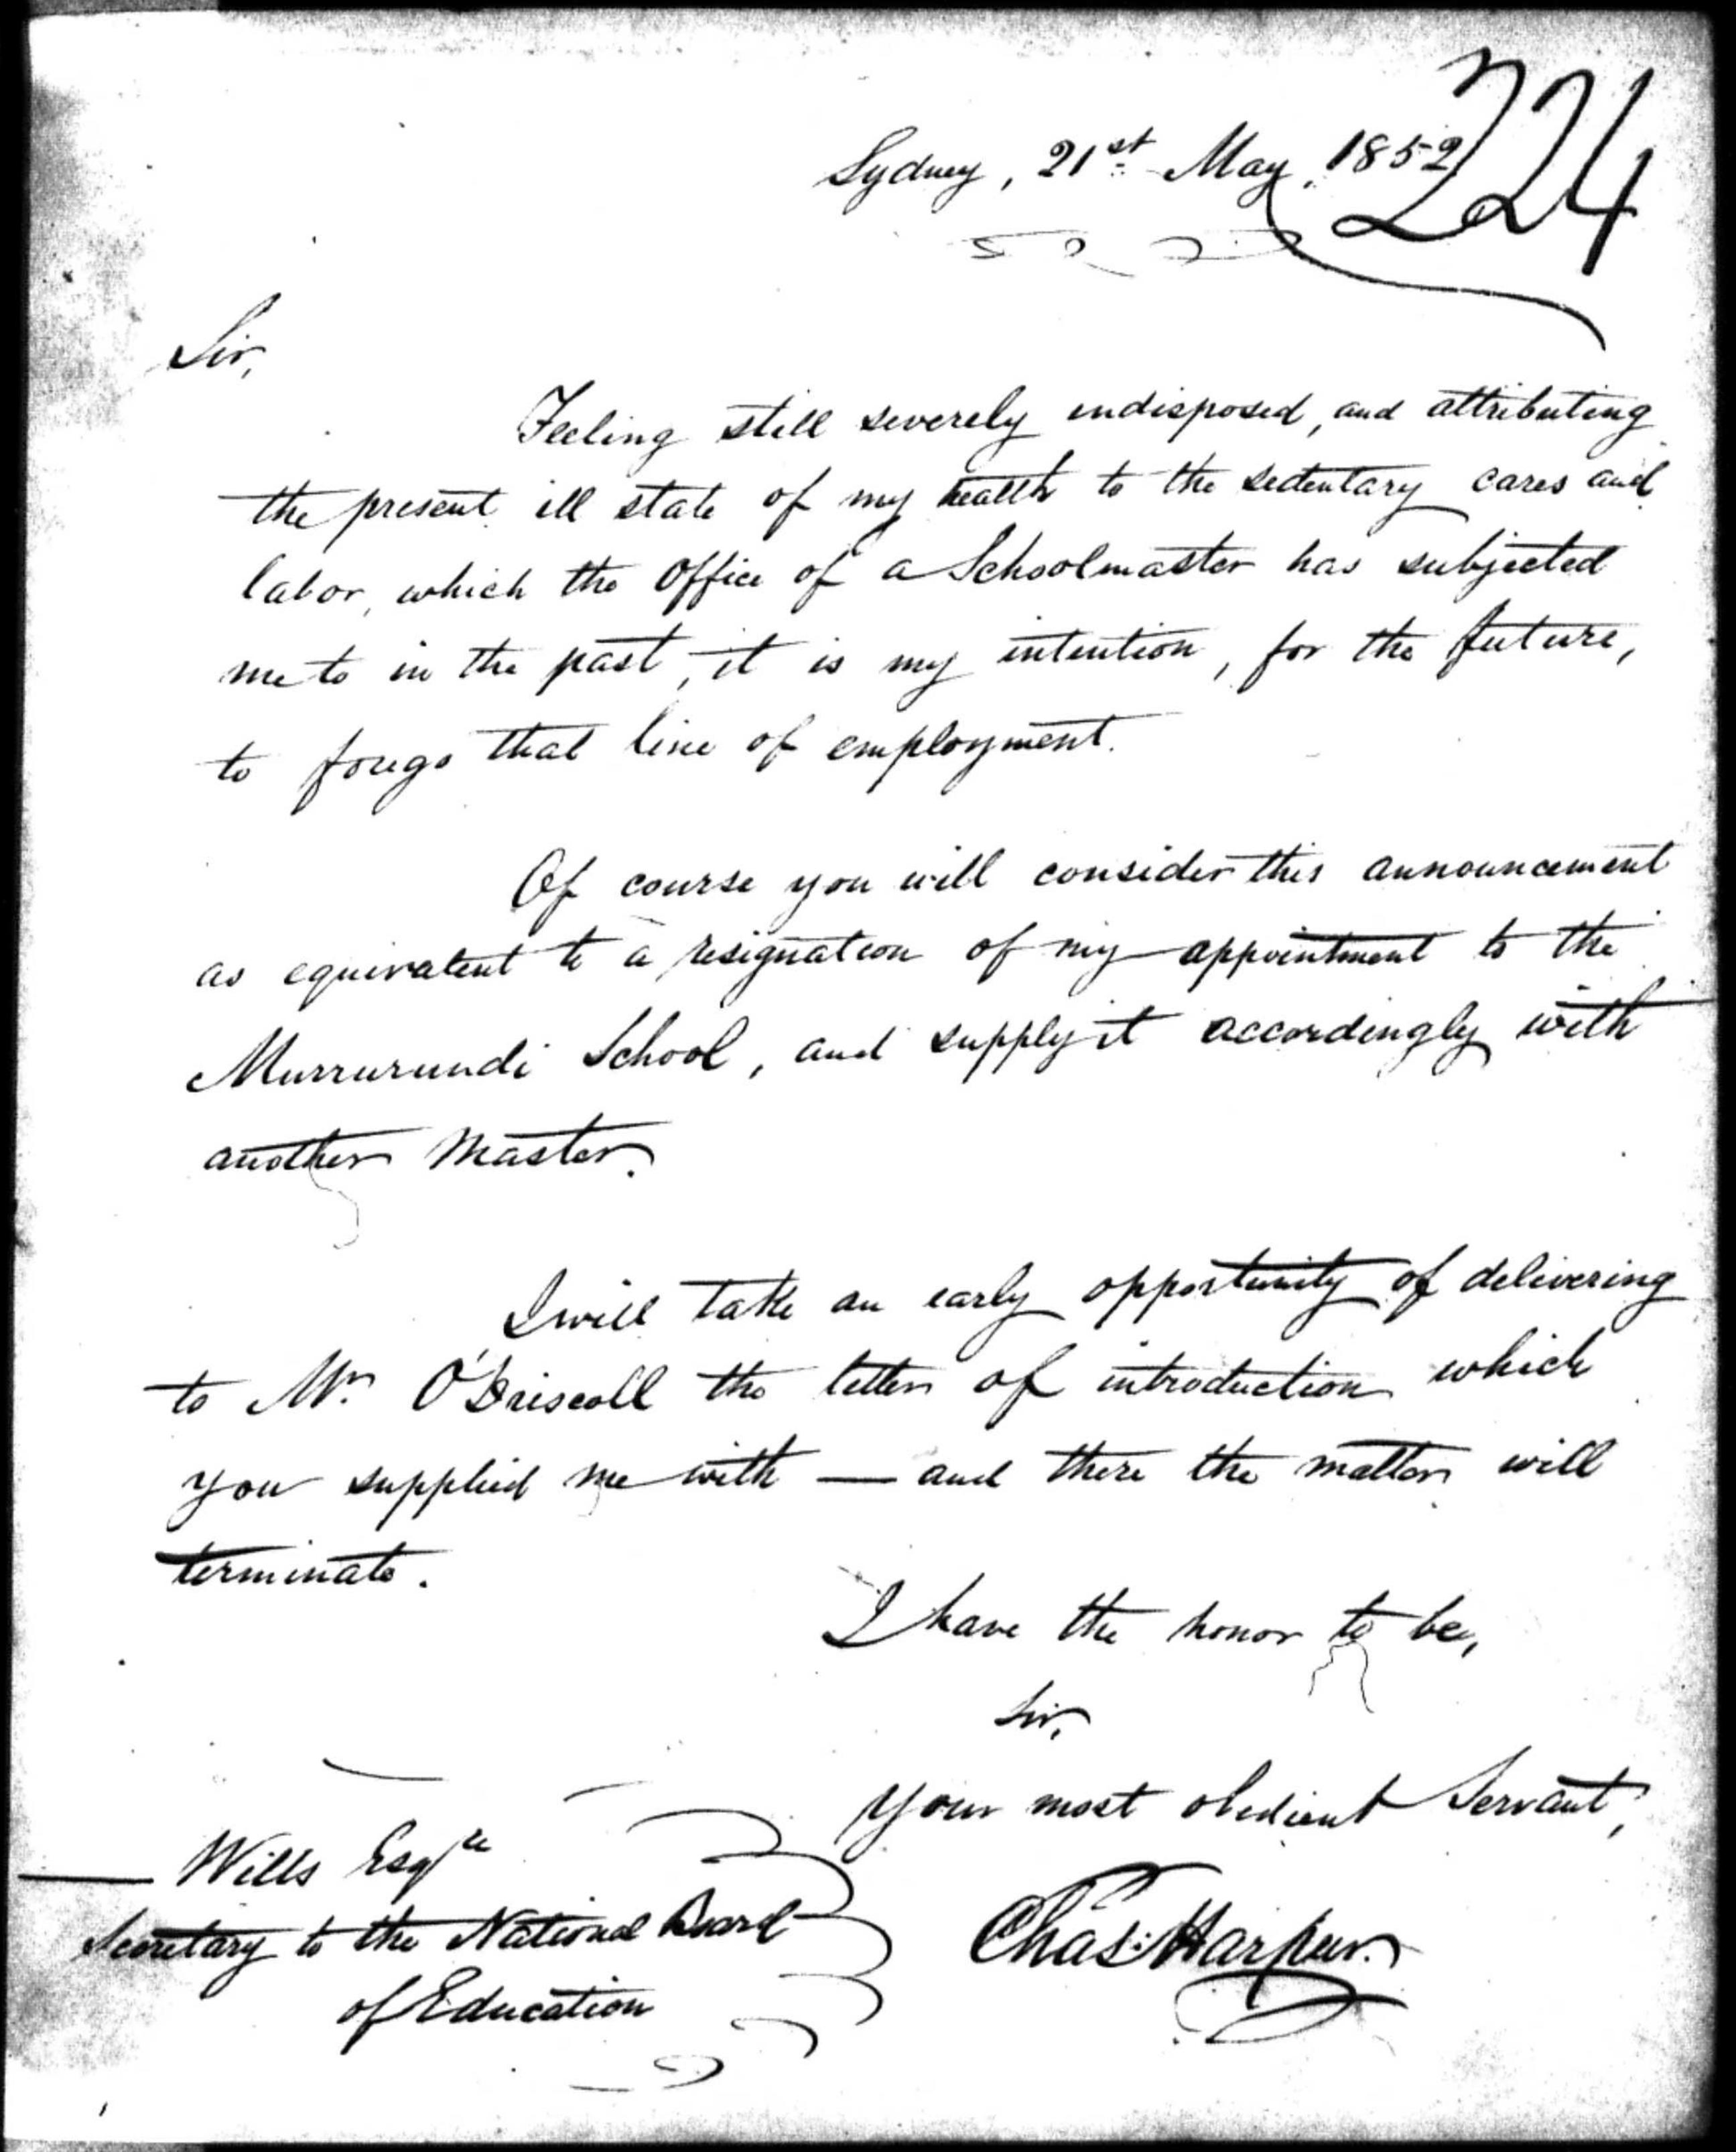 224
Sydney, 21st May, 1852
Sir,
Feeling still severely indisposed, and attributing
the present ill state of my health to the sedentary cares and
labor, which the Office of a Schoolmaster has subjected
me to in the past, it is my intention, for the future,
to forego that line of employment.
Of course you will consider this announcement
as equivalent to a resignation of my appointment to the
Murrurundi School, and supply it accordingly with
another Master.
I will take an early opportunity of delivering
to Mr. O'Driscoll the letter of introduction which
you supplied me with — and there the matter will
terminate.
I have the honor to be,
Sir,
Your most obedient Servant,
— Wills Esqre
Secretary to the National Board
of Education
Chas: Harpur.